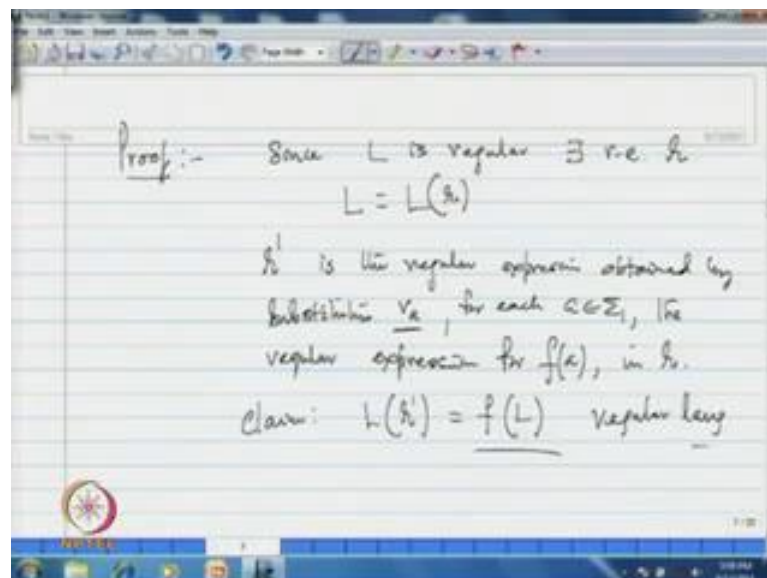 Proof :- Since L is regular ∃ r.e. r
L = L(r)
r' is the regular expression obtained by
substituting r_a, for each a ∈ Σ₁, the
regular expression for f(a), in r.
Claim: L(r') = f(L) regular lang
NPTEL